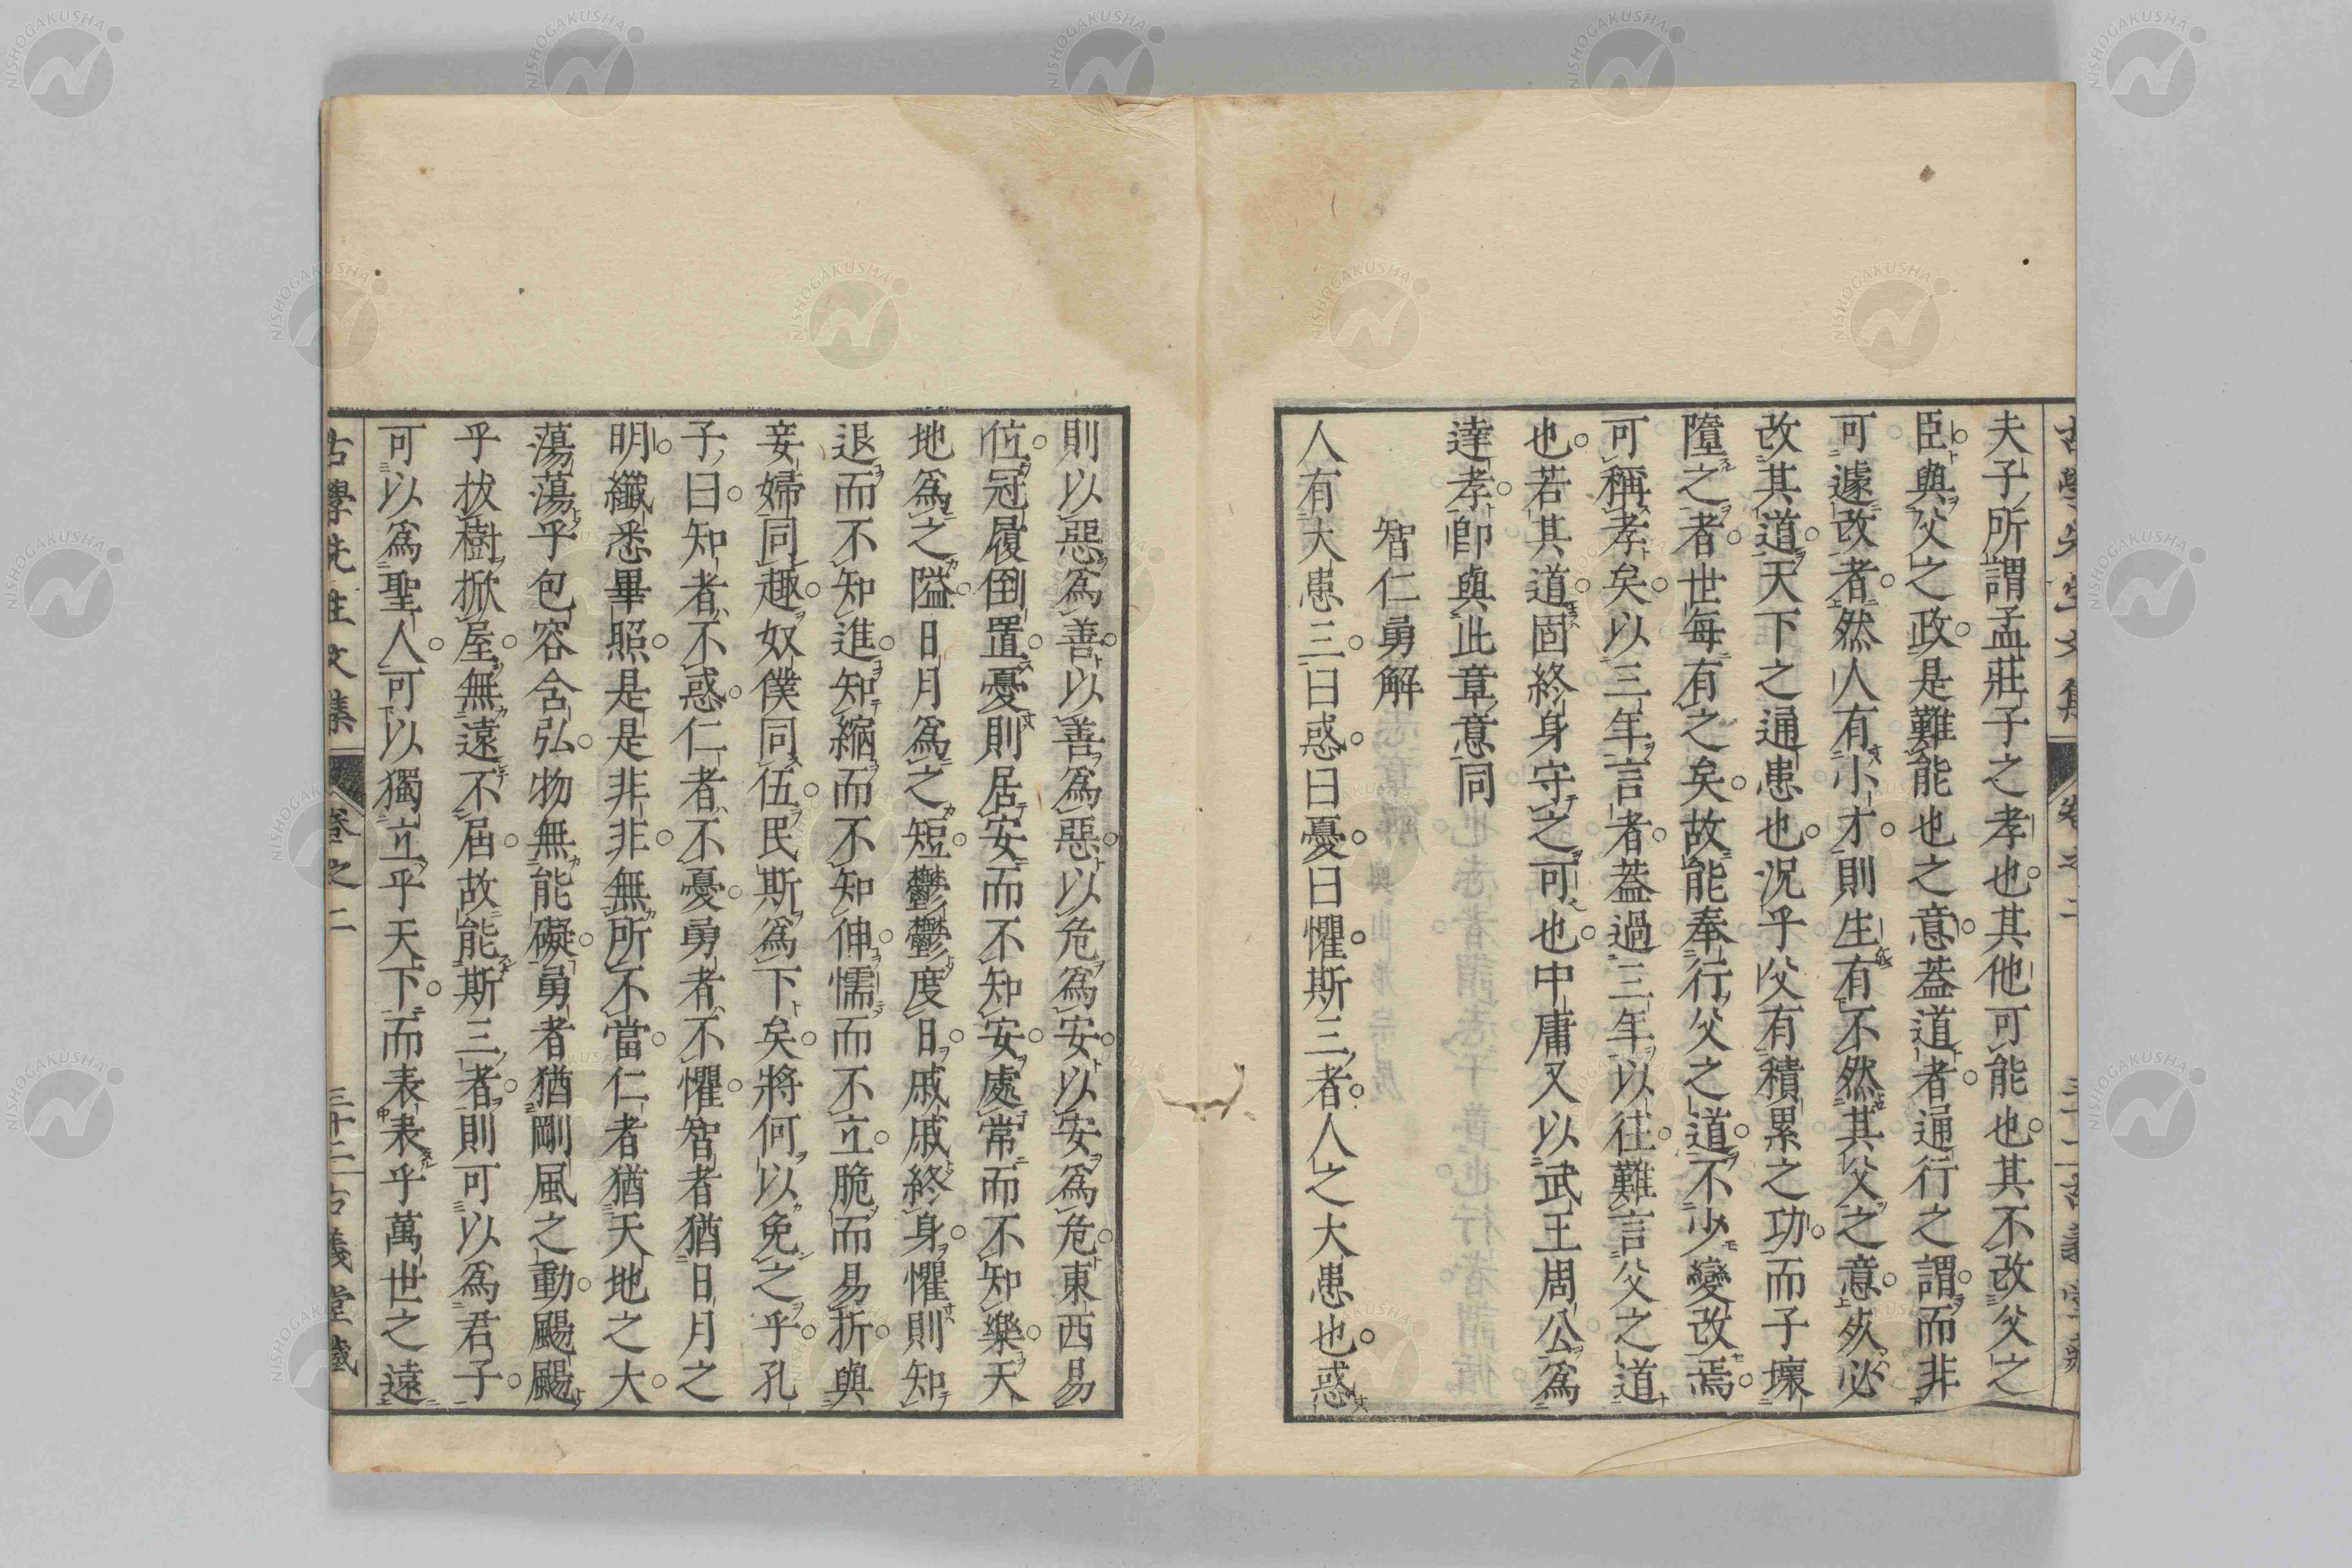 夫子所謂孟莊子之孝也其他可能也其不改父之
臣與父之政是難能也之意蓋道者通行之謂而非
可遽改者然人有小才則生有不然其父之意必
改其道天下之通患也況乎父有積累之功而子壞
隳之者世每有之矣故能奉行父之道不少變改焉
可稱孝矣以三年言者蓋過三年以往難言父之道
也若其道固終身守之可也中庸又以武王周公爲
達孝卽與此章意同
智仁勇解
人有大患三曰惑曰憂曰懼斯三者人之大患也惑
則以惡爲善以善爲惡以危爲安以安爲危東西易
位冠履倒置憂則居安而不知安處常而不知樂天
地爲之隘日月爲之短鬱鬱度日戚戚終身懼則知
退而不知進知縮而不知伸懦而不立脆而易折與
妾婦同趣奴僕同伍民斯爲下矣將何以免之乎孔
子曰知者不惑仁者不憂勇者不懼智者猶日月之
明纖悉畢照是是非非無所不當仁者猶天地之大
蕩蕩乎包容含弘物無能礙勇者猶剛風之動颺颺
乎拔樹掀屋無遠不屆故能斯三者則可以爲君子
可以爲聖人可以獨立乎天下而表表乎萬世之遠
古學先生文集 卷之二 三十二 古義堂藏
NISHOGAKUSHA